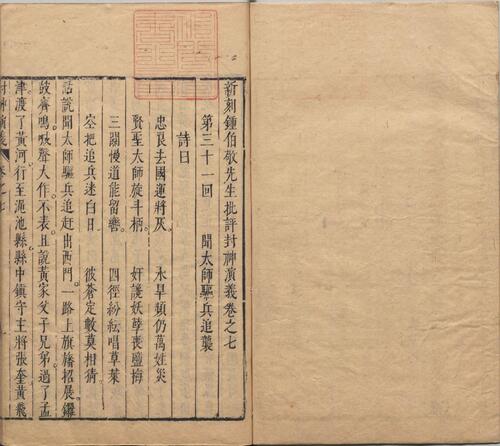 新刻鍾伯敬先生批評封神演義卷之七
第三十一回 聞太師驅兵追襲
詩曰
忠良去國運將灰 水旱頻仍萬姓災
賢聖太師旋斗柄 奸讒妖孽喪鹽梅
三關慢道能留轡 四徑紛紜唱草萊
空把追兵迷白日 彼蒼定數莫相猜
話說聞太師驅兵追赶出西門一路上旗旛招展鑼
鼓齊鳴喊聲大作不表且說黃家父子兄弟過了孟
津渡了黃河行至澠池縣縣中鎮守主將張奎黃飛
封神演義 卷之七